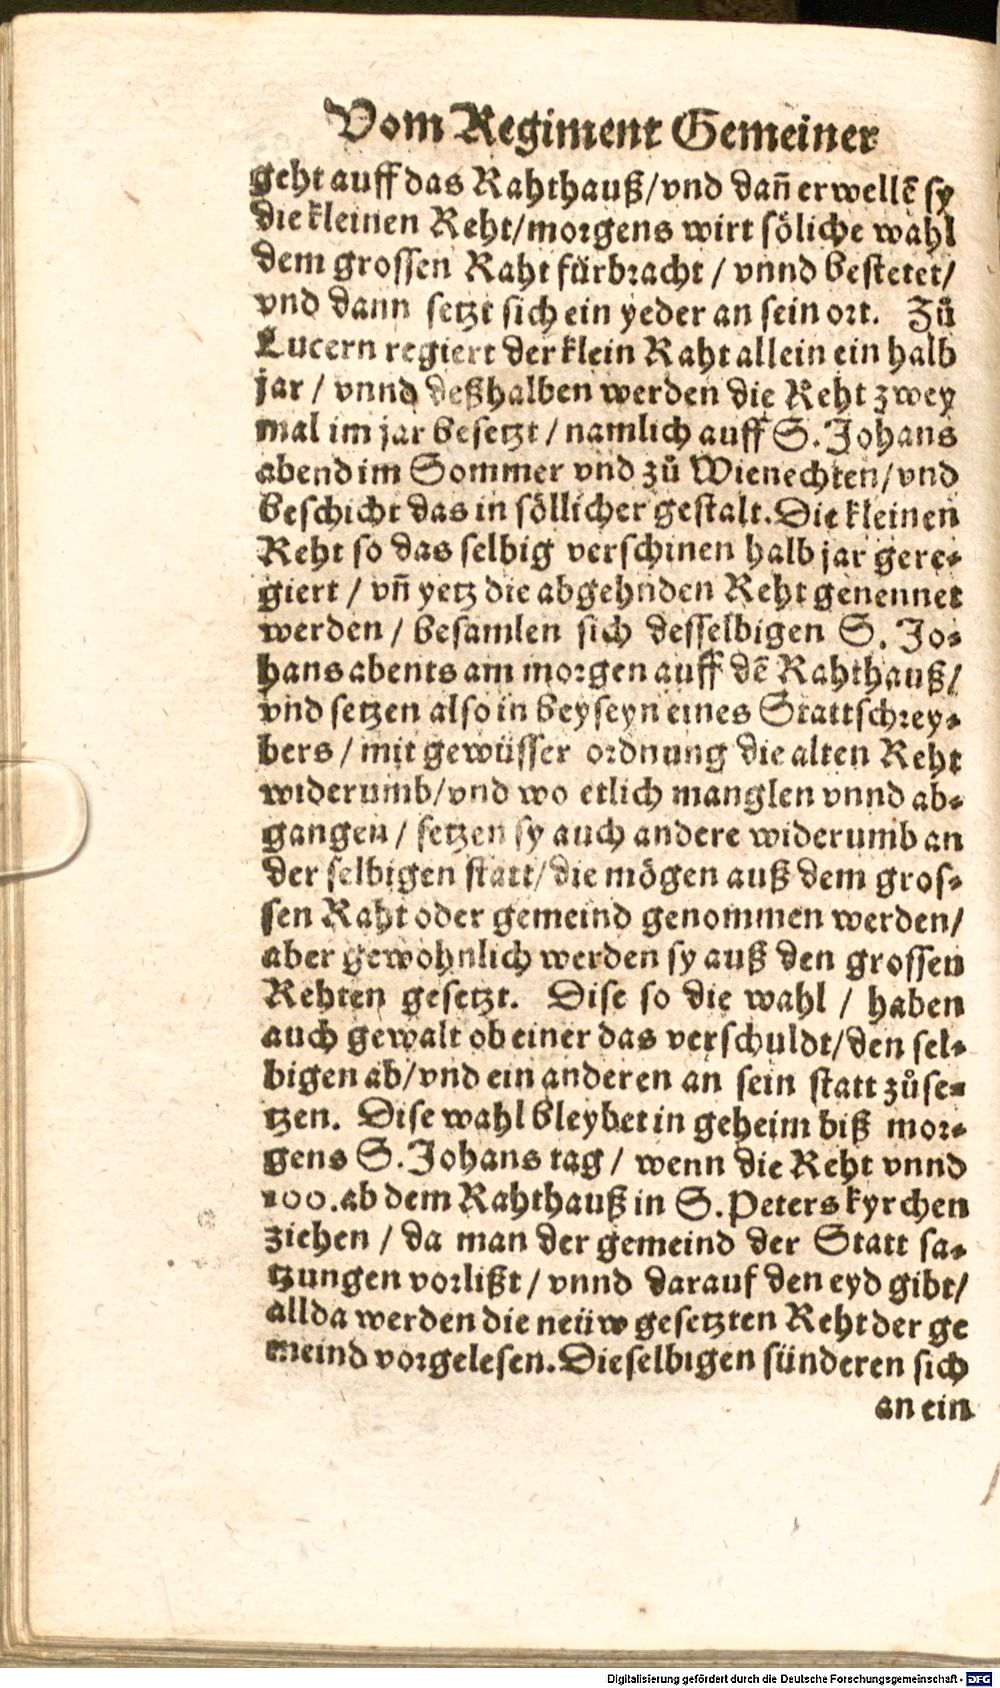 Vom Regiment Gemeiner
geht auff das Rahthauß/vnd dañ erwellẽ sy
die kleinen Reht/morgens wirt söliche wahl
dem grossen Raht fürbracht / vnnd bestetet/
vnd dann setzt sich ein yeder an sein ort. Zů
Lucern regiert der klein Raht allein ein halb
jar / vnnd deßhalben werden die Reht zwey
mal im jar besetzt / namlich auff S. Johans
abend im Sommer vnd zů Wienechten/vnd
beschicht das in söllicher gestalt. Die kleinen
Reht so das selbig verschinen halb jar gere⸗
giert / vñ yetz die abgehnden Reht genennet
werden / besamlen sich desselbigen S. Jo⸗
hans abents am morgen auff dẽ Rahthauß/
vnd setzen also in beyseyn eines Stattschrey⸗
bers / mit gewüsser ordnung die alten Reht
widerumb/vnd wo etlich manglen vnnd ab⸗
gangen / setzen sy auch andere widerumb an
der selbigen statt/die mögen auß dem gros⸗
sen Raht oder gemeind genommen werden/
aber gewohnlich werden sy auß den grossen
Rehten gesetzt. Dise so die wahl / haben
auch gewalt ob einer das verschuldt/den sel⸗
bigen ab/vnd ein anderen an sein statt zůse⸗
tzen. Dise wahl bleybet in geheim biß mor⸗
gens S. Johans tag / wenn die Reht vnnd
100. ab dem Rahthauß in S. Peters kyrchen
ziehen / da man der gemeind der Statt sa⸗
tzungen vorlißt / vnnd darauf den eyd gibt/
allda werden die neüw gesetzten Reht der ge
meind vorgelesen. Dieselbigen sünderen sich
an ein
Digitalisierung gefördert durch die Deutsche Forschungsgemeinschaft - DFG